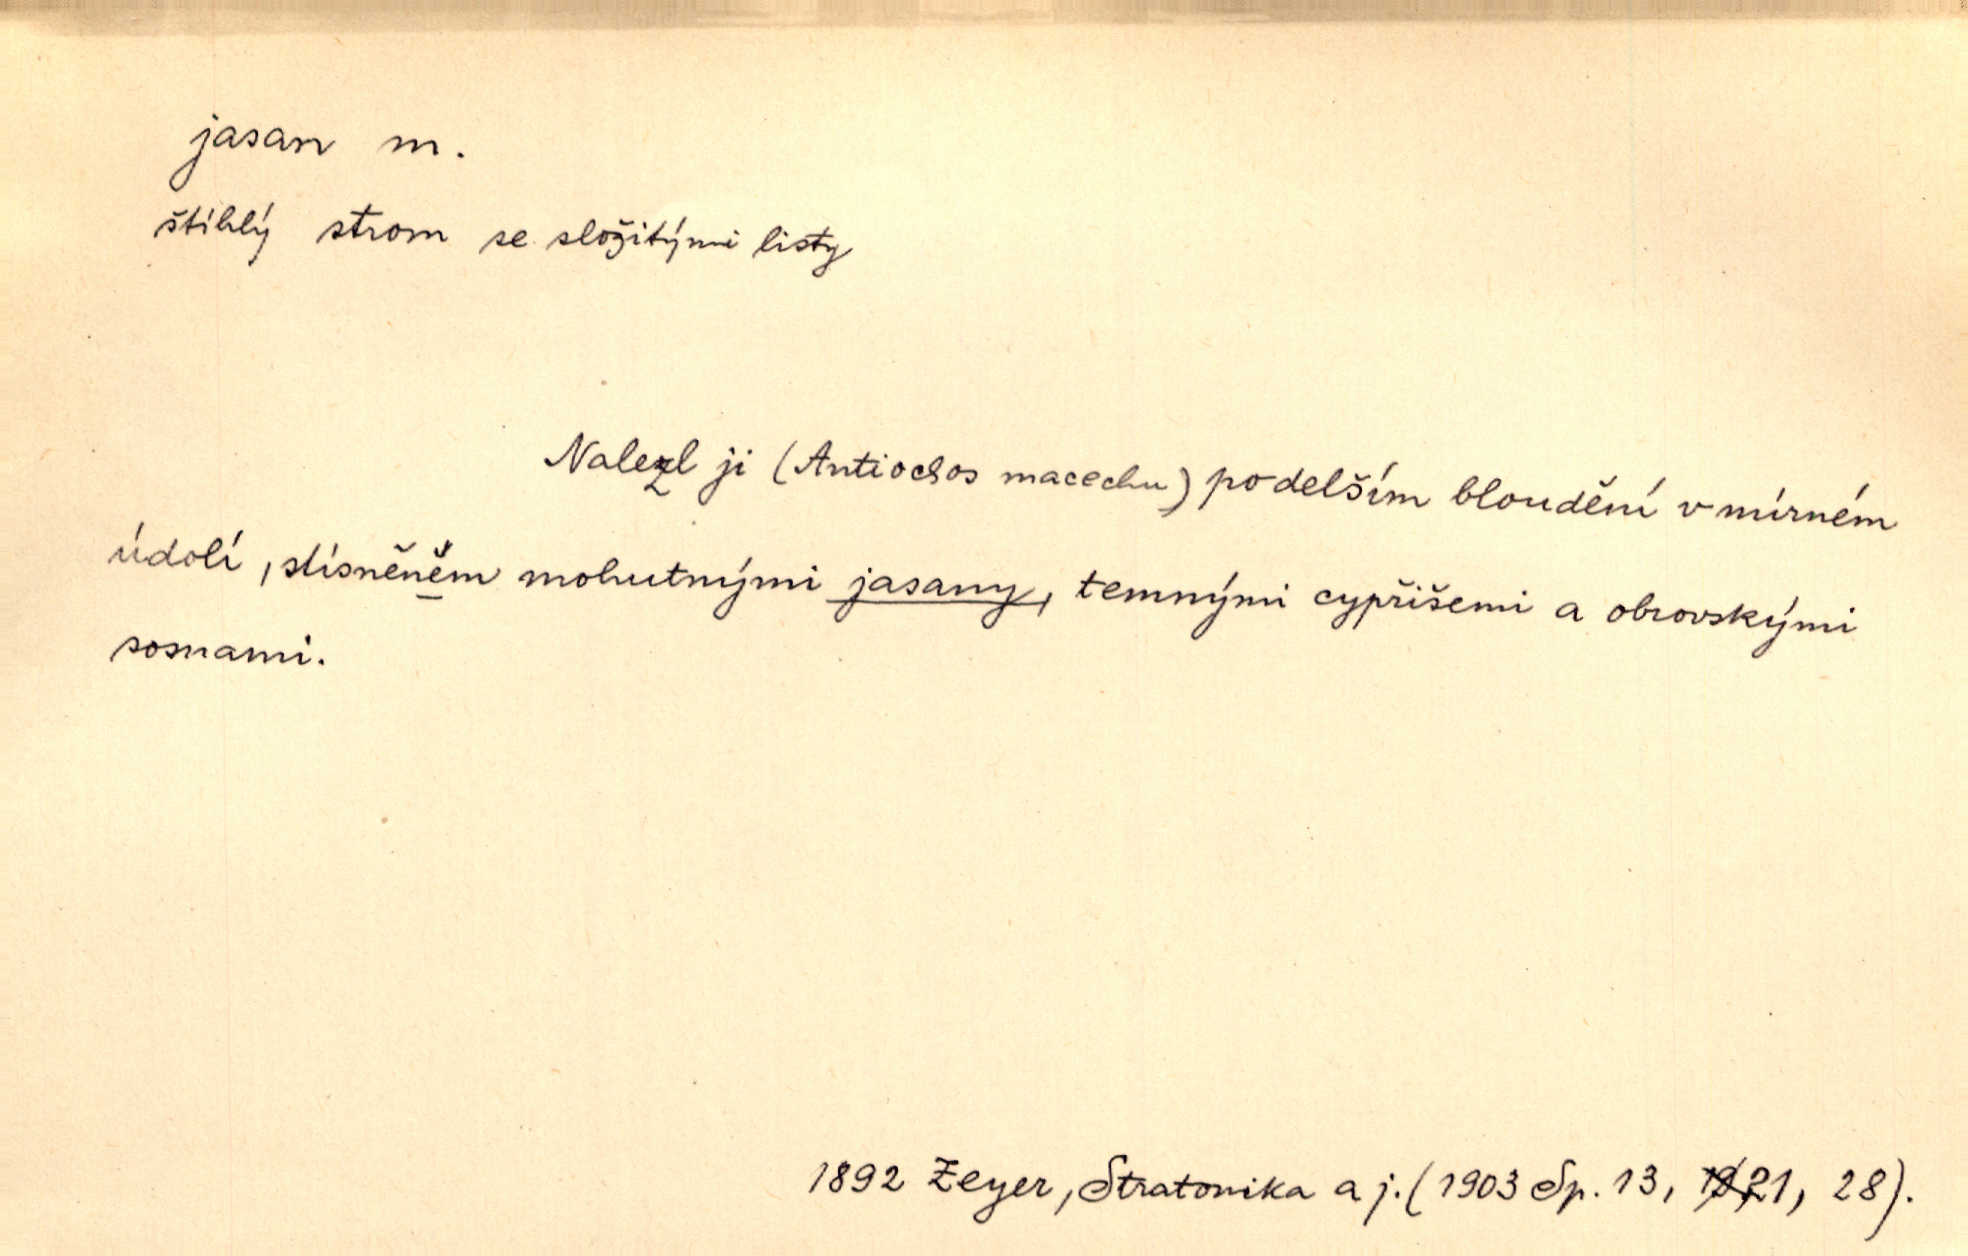 jasan m.
štíhlý strom se složitými listy
Nalezl ji (Antiochos macechu) po delším bloudění v mírném
údolí, stísněném mohutnými jasany, temnými cypřišemi a obrovskými
sosnami.
1892 Zeyer, Stratonika a j. (1903 Sp. 13, 21, 28).